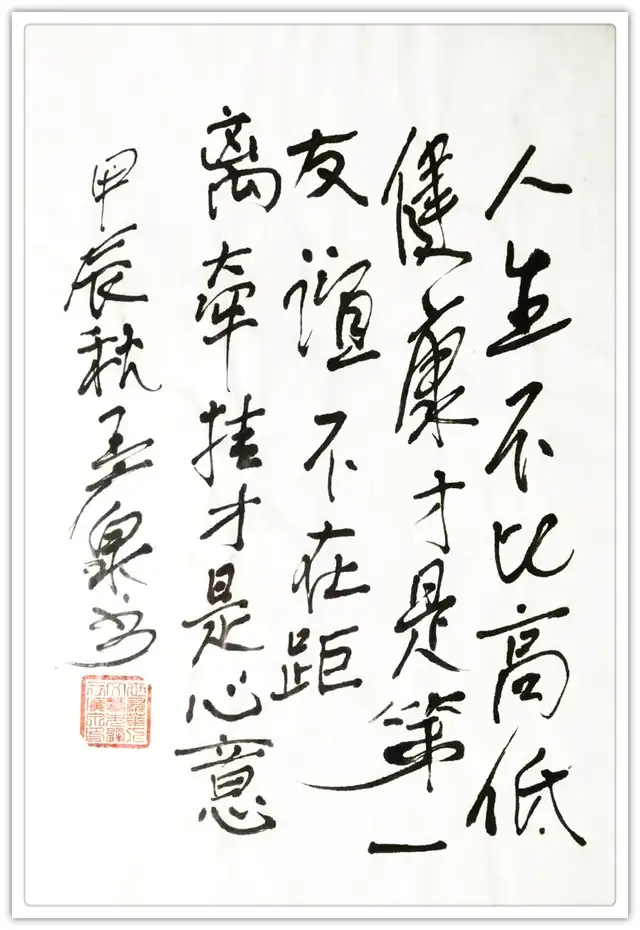 人生不比高低
健康才是第一
友谊不在距
离牵挂才是心意
甲辰秋玉泉书